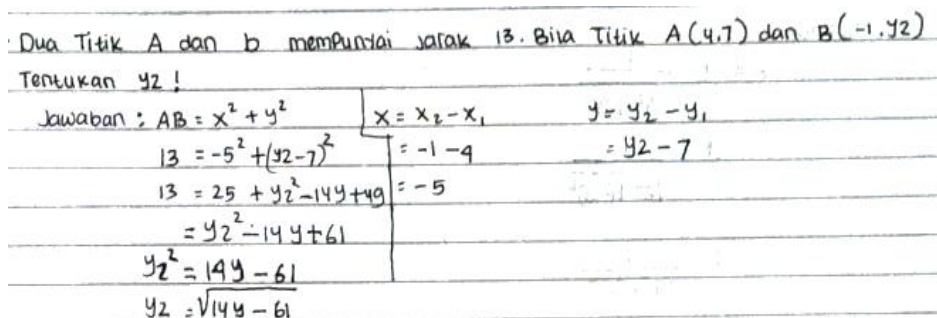 Dua Titik A dan b mempunyai jarak 13. Bila Titik A (4.7) dan B (-1.y2)
Tentukan y2 !
Jawaban : AB = x² + y²
13 = -5² + (y2-7)²
13 = 25 + y2²-14y+49
= y2²-14y+61
y2² = 14y - 61
y2 = √14y - 61
x = x2 - x1
= -1 - 4
= -5
y = y2 - y1
= y2 - 7